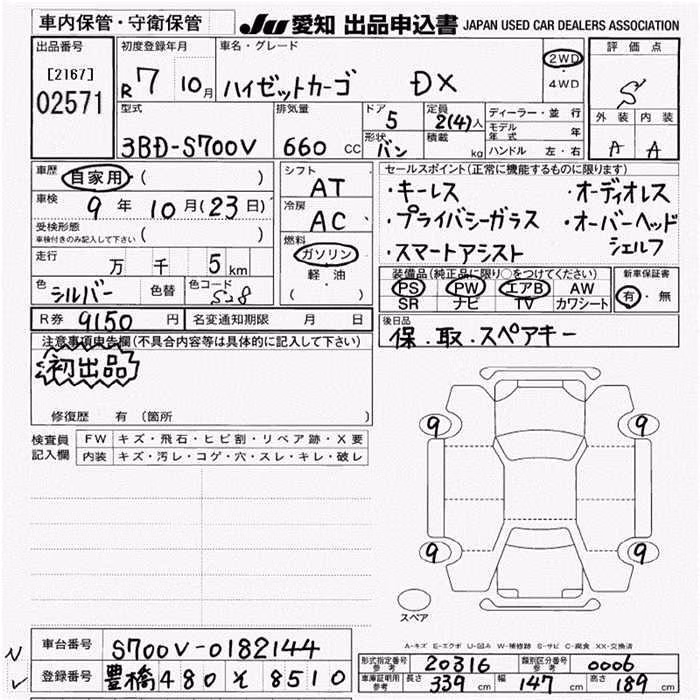 車内保管・守衛保管 JU 愛知 出品申込書 JAPAN USED CAR DEALERS ASSOCIATION
出品番号 初度登録年月 車名・グレード 評価点
[2167] R7 10月 ハイゼットカーゴ DX 2WD・4WD S
02571 型式 排気量 ドア 5 定員 2(4)人 ディーラー・並行 外装 内装
3BD-S700V 660 CC 形状 バン 積載 kg モデル年式 年 A A
ハンドル 左・右
車歴 自家用・( ) シフト AT セールスポイント(正常に機能するものに限ります)
車検 9年10月(23日) 冷房 AC ・キーレス ・オーディオレス
受検形態 ( ) ・プライバシーガラス ・オーバーヘッド
車検付きのみ記入して下さい 燃料 シェルフ
走行 万 千 5km ガソリン ・スマートアシスト
軽油 装備品(純正品に限り○をつけてください) 新車保証書
色 シルバー 色替 色コード S28 ( ) PS PW エアB AW 有・無
SR ナビ TV カワシート
R券 9150円 名変通知期限 月 日 後日品
注意事項申告欄(不具合内容等は具体的に記入して下さい) 保.取.スペアキー
初出品
修復歴 有(箇所
検査員 FW キズ・飛石・ヒビ割・リペア跡・X要
記入欄 内装 キズ・汚レ・コゲ・穴・スレ・キレ・破レ
9 9
9 9
スペア
A-キズ E-エクボ U-凹み W-補修跡 S-サビ C-腐食 XX-交換済
車台番号 S700V-0182144
型式指定番号 参考 20316 類別区分番号 参考 0006
登録番号 豊橋 480 そ 8510
車庫証明用 参考 長さ 339 cm 幅 147 cm 高さ 189 cm